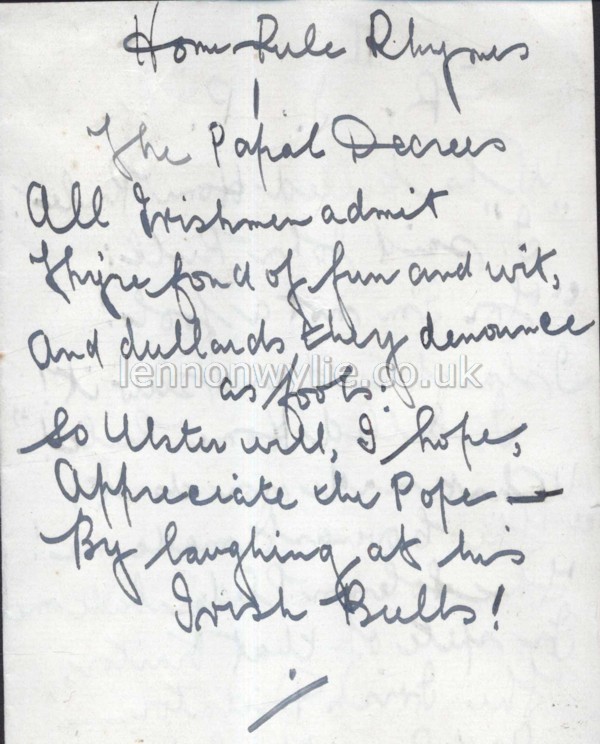 Home Rule Rhymes
1
The Papal Decrees
All Irishmen admit
They're fond of fun and wit,
And dullards they denounce
as fools.
So Ulster will, I hope,
Appreciate the Pope —
By laughing at his
Irish Bulls!
lennonwylie.co.uk